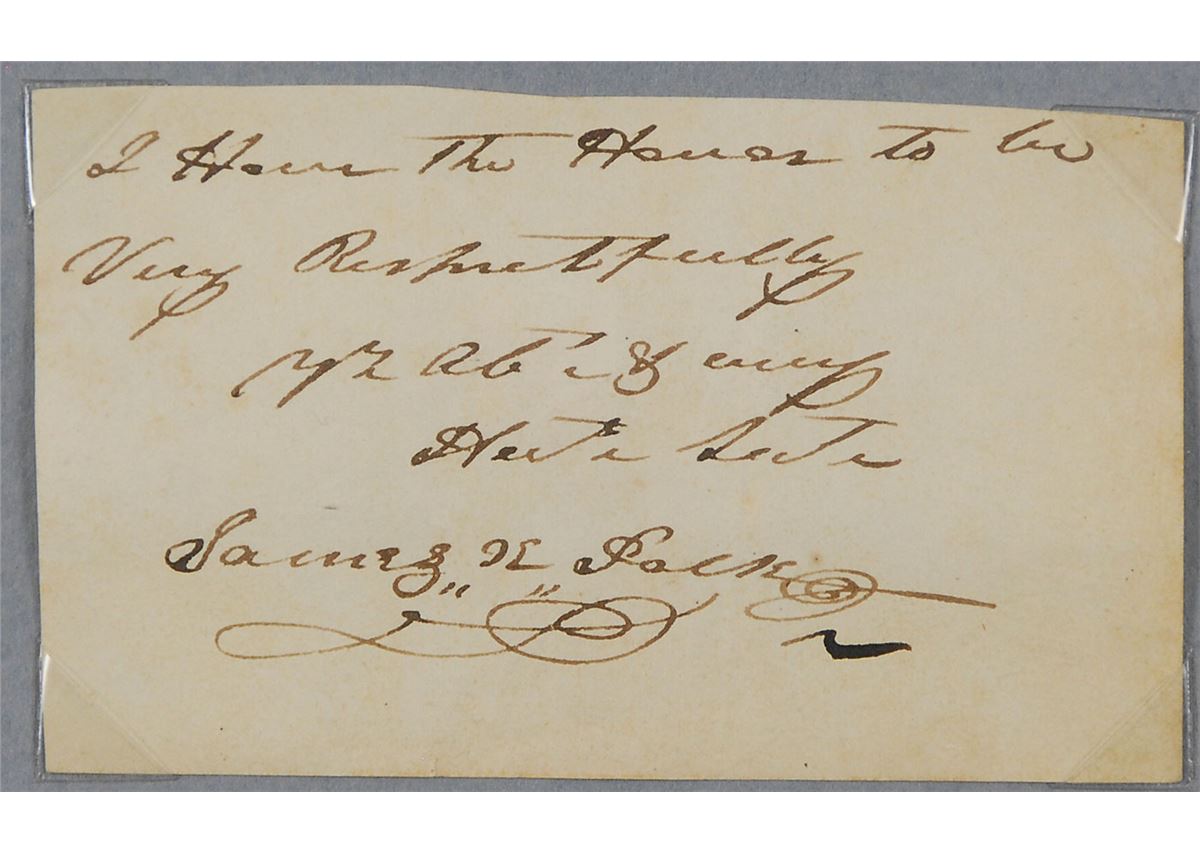 I Have The Honor to be
Very Respectfully
Yr Obt & very
Hble Svt
James "K" Polk